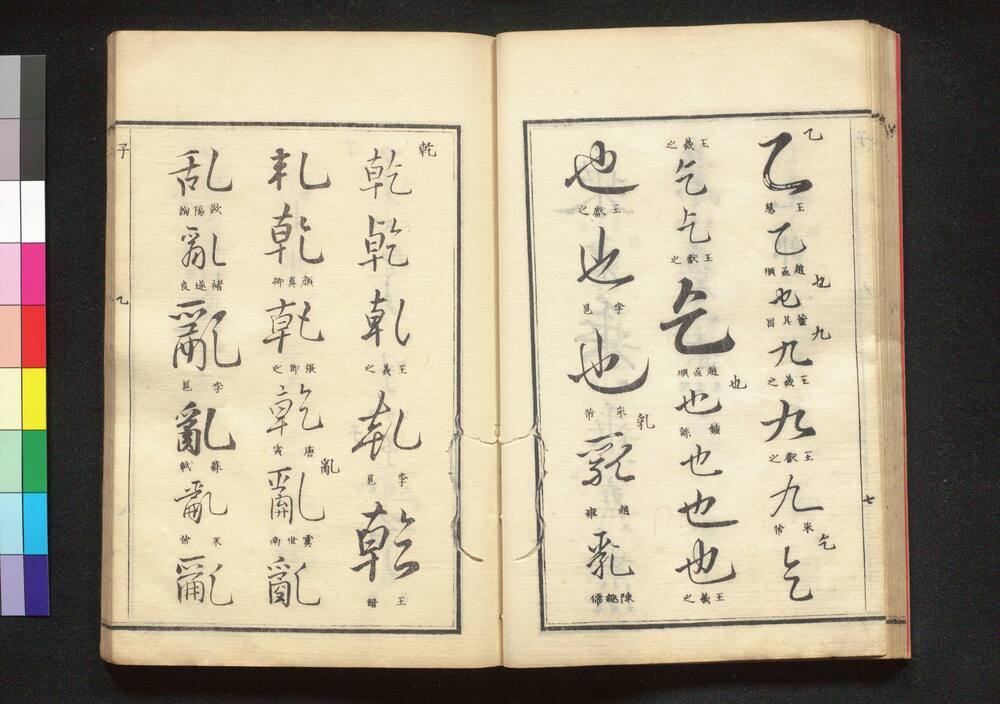 乙
乙
王慈
乙
趙孟頫
也
也
董其昌
九
九
王羲之
九
王獻之
九
米芾
乞
乞
王羲之
乞
乞
王獻之
乞
趙孟頫
也
也
鍾繇
也
也
也
王羲之
也
王獻之
也
李邕
也
米芾
乳
乳
趙雍
乳
陳繼儒
七
乾
乾
乾
乾
王羲之
乾
李邕
乾
王鐸
乾
乾
顏真卿
乾
張即之
乾
唐寅
亂
亂
虞世南
亂
乱
歐陽詢
亂
褚遂良
亂
李邕
亂
蘇軾
亂
米芾
亂
子
乙